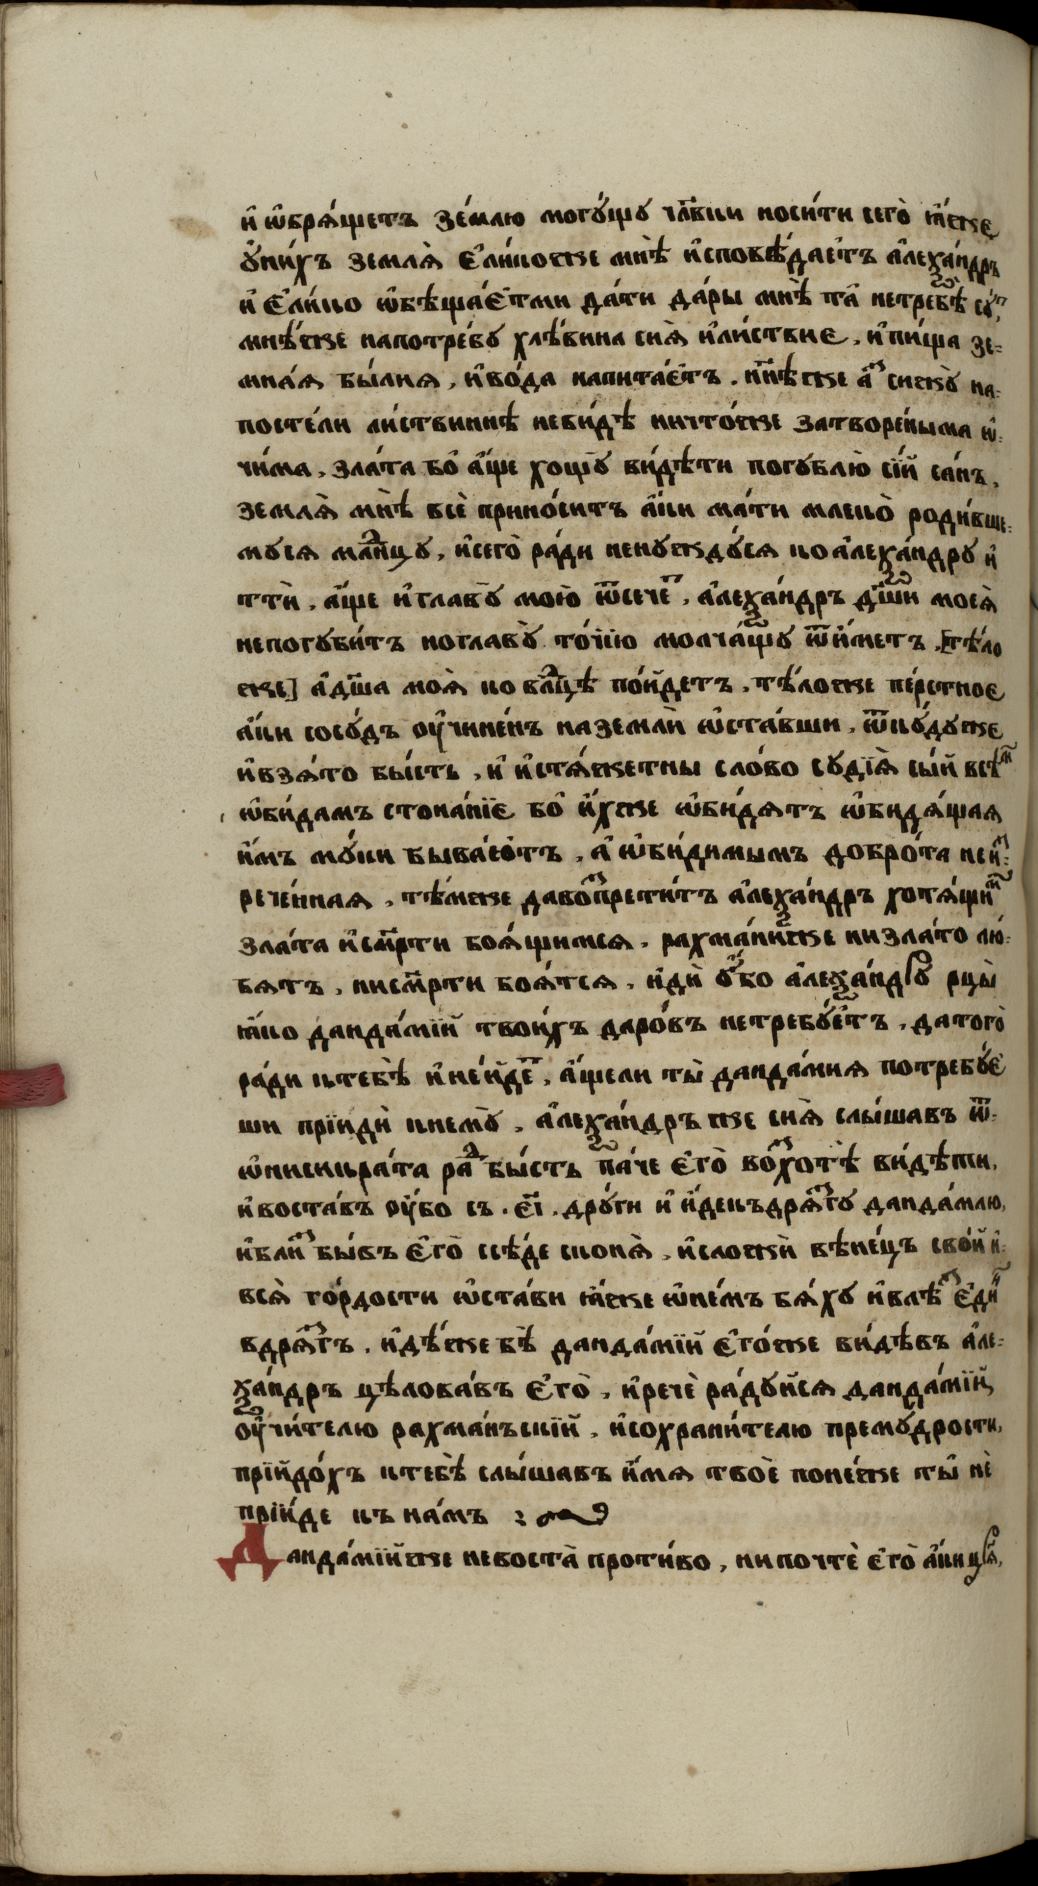 и҆ ѡ҆бря́щетъ зе́млю могу́щу чл҃вки носи́ти сего̀ ꙗ҆́же
у҆ни́хъ земля̀ є҆ли́коже мнѣ̀ и҆сповѣ́даетъ а҆леѯа́ндръ
и҆ є҆ли́ко ѡ҆бѣща́є҆тми да́ти да́ры мнѣ̀ та̑ нетребѣ̀ су́т
мнѣ́же напотре́бу хлѣ́вина сия̀ и҆ли́ствие, и҆пи́ща зе=
мна́я бы́лия, и҆во́да напита́є҆тъ. нн҃ѣже а҆ снежу̀ на=
посте́ли ли́ствиннѣ неви́дѣ ничто́же затворе́ныма ѡ҆=
чи́ма, зла́та бо̑ а҆́ще хощу̀ ви́дѣти погублю̀ сі́й са́нъ,
земля̀ мнѣ̀ всѐ прино́ситъ а҆́ки ма́ти млеко̀ роди́вше=
муся млⷣнцу, и҆сего̀ ра́ди ненужду́ся ко а҆леѯа́ндру и҆
тти̑, а҆́ще и҆ главу̀ мою̀ ѿсече, а҆леѯа́ндръ дш҃и моея̀
непогуби́тъ но главу̀ то́чїю молча́щу ѿи́метъ. [тѣ́ло
же] а҆ дш҃а моя̀ ко влⷣцѣ по́йдетъ, тѣ́ложе пе́рстное
а҆́ки сосу́дъ оу҆чине́нъ на земли̑ ѡ҆ста́вши, ѿку́дуже
и҆взя́то бы́сть, и҆ и҆стя́жетны сло́во судїя̀ сы́й всѣⷨ
ѡ҆би́дамъ стона́нїє бо̑ и҆́хже ѡ҆би́дятъ ѡ҆бидя́щая
и҆́мъ му́ки быва́ютъ, а҆ ѡ҆би́димымъ добро́та неиз=
рече́нная, тѣ́мже даво прети́тъ а҆леѯа́ндръ хотя́щиⷨ
зла́та и҆см҃рти боя́щимся. рахма́ниже ни зла́то лю=
бятъ, нисм҃рти боя́тся, и҆ди̑ у҆́бо а҆леѯа́ндру рцы̀
ꙗ҆́ко данда́мїй твои́хъ даро́въ нетребу́є҆тъ, датого̀
ра́ди ктебѣ̀ и҆ не́йдеⷮ, а҆́щели ты̀ данда́мия потребу́є=
ши прїиди̑ кнему̀, а҆леѯа́ндръ же сия̀ слы́шавъ ѿ=
ѡ҆нисикра́та раⷣ бы́сть па́че є҆го̀ восхотѣ̀ ви́дѣти,
и҆воста́въ оу҆́бо съ. є҃і. дру́ги и҆ и҆́декъдря́згу данда́млю,
и҆бли бы́въ є҆го̀ ссѣ́де сконя̀, и҆сложи̑ вѣне́цъ сво́й и҆=
вся̀ го́рдости ѡ҆ста́ви ꙗ҆́же ѡ҆не́мъ бя́ху и҆влѣ́зе є҆ди́н
вдря́згъ, и҆дѣ́же бѣ̀ данда́мїй є҆го́же ви́дѣвъ а҆ле=
ѯа́ндръ цѣлова́въ є҆го̀, и҆речѐ ра́дуйся данда́мїй
оу҆чи́телю рахма́нъскїй, и҆сохрани́телю прему́дрости,
прїйдо́хъ ктебѣ̀ слы́шавъ и҆́мя твоѐ поне́же ты̑ нѐ
прїи́де къ на́мъ :
Данда́мїйже невоста̀ проти́во, ни почтѐ є҆го̀ а҆́ки цр҃я,